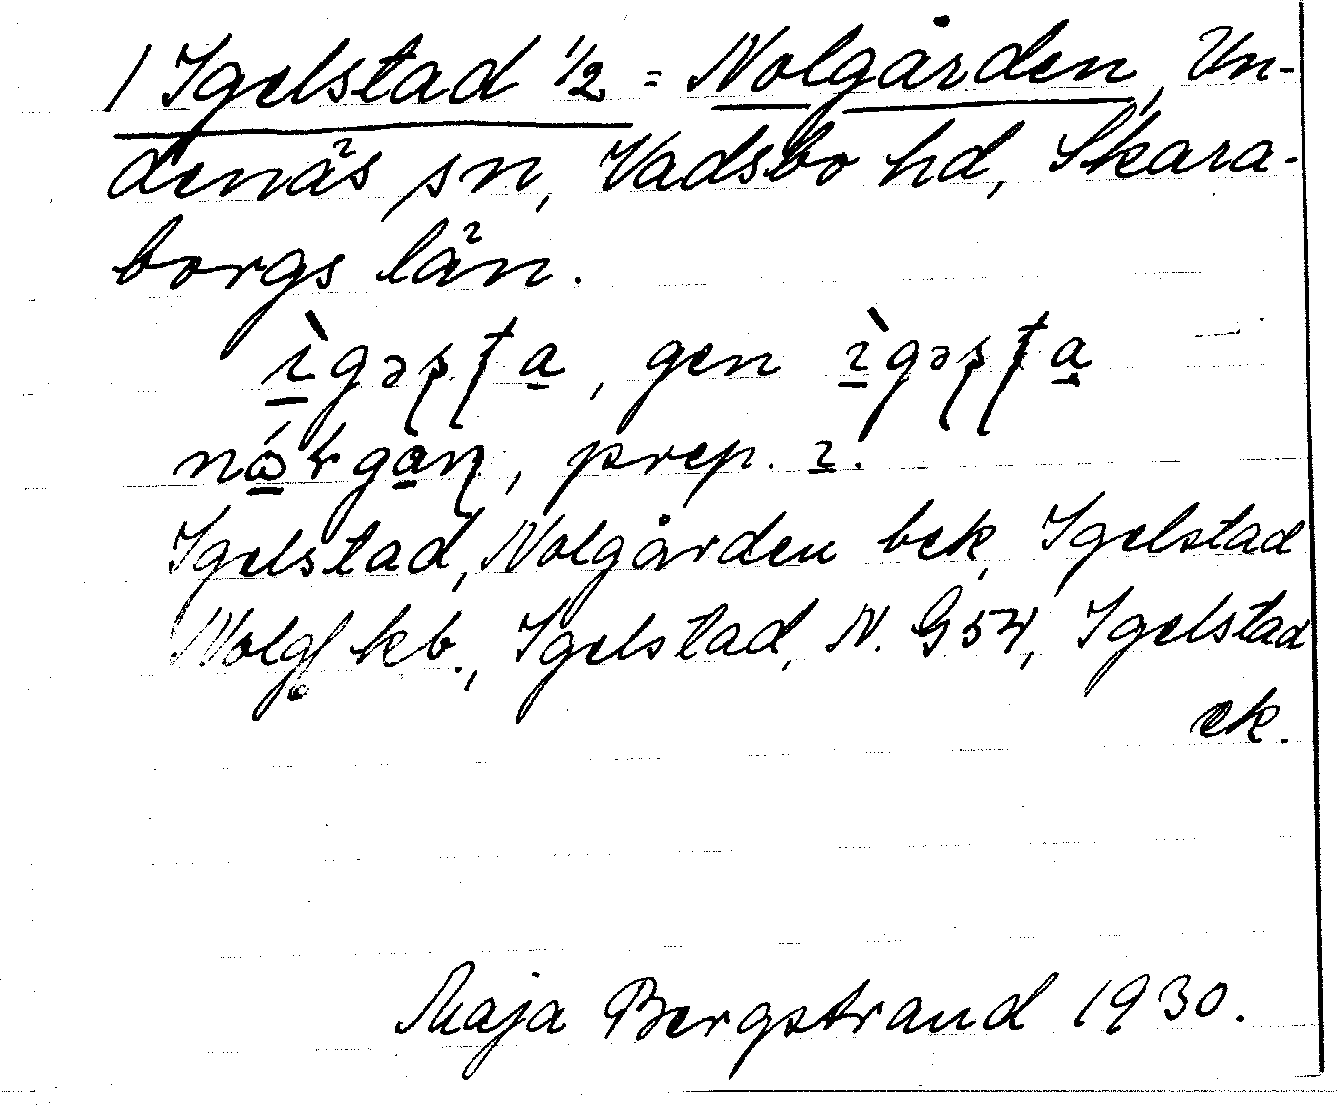 1 Igelstad 1/2 = Nolgården, Un-
denäs sn, Vadsbo hd, Skara-
borgs län.
gen
prep. ɩ.
Igelstad, Nolgården bek, Igelstad
Nolg. kb., Igelstad, N. G 54, Igelstad
ek.
Maja Bergstrand 1930.